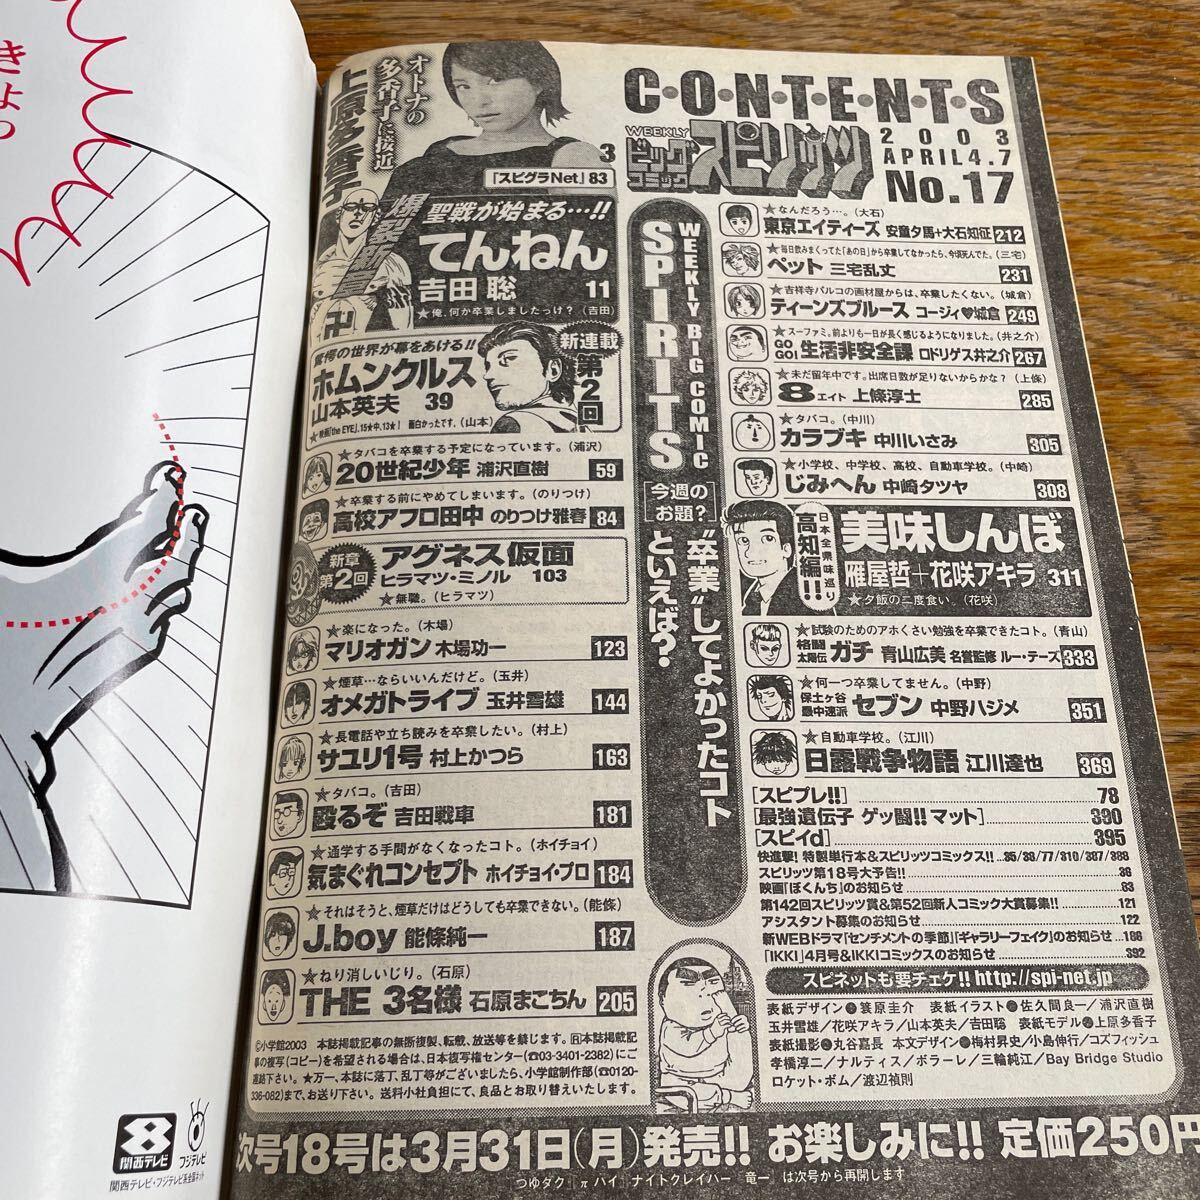 きょっ
CONTENTS
WEEKLY
ビッグコミック
スピリッツ
2003
APRIL4.7
No.17
オトナの
多香子に接近
上原多香子
3
『スピグラNet』83
聖戦が始まる…!!
てんねん
吉田 聡 11
★俺、何か卒業しましたっけ?(吉田)
驚愕の世界が幕をあける!!
新連載
第2回
ホムンクルス
山本英夫 39
★映画「the EYE」、15★中、13★! 面白かったです。(山本)
★タバコを卒業する予定になっています。(浦沢)
20世紀少年 浦沢直樹 59
★卒業する前にやめてしまいます。(のりつけ)
高校アフロ田中 のりつけ雅春 84
新章
第2回
アグネス仮面
ヒラマツ・ミノル 103
★無職。(ヒラマツ)
★楽になった。(木場)
マリオガン 木場功一 123
★煙草…ならいいんだけど。(玉井)
オメガトライブ 玉井雪雄 144
★長電話や立ち読みを卒業したい。(村上)
サユリ1号 村上かつら 163
★タバコ。(吉田)
殴るぞ 吉田戦車 181
★通学する手間がなくなったコト。(ホイチョイ)
気まぐれコンセプト ホイチョイ・プロ 184
★それはそうと、煙草だけはどうしても卒業できない。(能條)
J.boy 能條純一 187
★ねり消しいじり。(石原)
THE 3名様 石原まこちん 205
©小学館2003 本誌掲載記事の無断複製、転載、放送等を禁じます。R本誌掲載記
事の複写(コピー)を希望される場合は、日本複写権センター(☎03-3401-2382)にご
連絡下さい。★万一、本誌に落丁、乱丁等がございましたら、小学館制作部(☎0120-
336-082)まで、お送り下さい。送料小社負担にて、良品とお取り替えいたします。
WEEKLY BIG COMIC
SPIRITS
[今週のお題?]
“卒業”してよかったコト
といえば?
★なんだろう…。(大石)
東京エイティーズ 安童夕馬+大石知征 212
★毎日飲みまくってた「あの日」から卒業してなかったら、今頃死んでた。(三宅)
ペット 三宅乱丈 231
★吉祥寺パルコの画材屋からは、卒業したくない。(城倉)
ティーンズブルース コージィ♥城倉 249
★スーファミ。前よりも一日が長く感じるようになりました。(井之介)
GO GO! 生活非安全課 ロドリゲス井之介 267
★未だ留年中です。出席日数が足りないからかな?(上條)
8エイト 上條淳士 285
★タバコ。(中川)
カラブキ 中川いさみ 305
★小学校、中学校、高校、自動車学校。(中崎)
じみへん 中崎タツヤ 308
日本全県味巡り
高知編!!
美味しんぼ
雁屋哲+花咲アキラ 311
★夕飯の二度食い。(花咲)
★試験のためのアホくさい勉強を卒業できたコト。(青山)
格闘太陽伝 ガチ 青山広美 名誉監修 ルー・テーズ 333
★何一つ卒業してません。(中野)
保土ヶ谷最中速派 セブン 中野ハジメ 351
★自動車学校。(江川)
日露戦争物語 江川達也 369
[スピプレ!!] 78
[最強遺伝子 ゲッ闘!! マット] 390
[スピイd] 395
快進撃! 特製単行本&スピリッツコミックス!! …35/38/77/310/387/388
スピリッツ第18号大予告!! 36
映画「ぼくんち」のお知らせ 83
第142回スピリッツ賞&第52回新人コミック大賞募集!! 121
アシスタント募集のお知らせ 122
新WEBドラマ「センチメントの季節」「ギャラリーフェイク」のお知らせ …186
「IKKI」4月号&IKKIコミックスのお知らせ 392
スピネットも要チェケ!! http://spi-net.jp
表紙デザイン 簑原圭介 表紙イラスト 佐久間良一/浦沢直樹
玉井雪雄/花咲アキラ/山本英夫/吉田聡 表紙モデル 上原多香子
表紙撮影 丸谷嘉長 本文デザイン 梅村昇史/小島伸行/コズフィッシュ
孝橋淳二/ナルティス/ボラーレ/三輪純江/Bay Bridge Studio
ロケット・ボム/渡辺禎則
8
関西テレビ
フジテレビ
関西テレビ・フジテレビ系全国ネット
次号18号は3月31日(月)発売!! お楽しみに!! 定価250円
つゆダク πパイ ナイトクレイハー 竜一 は次号から再開します